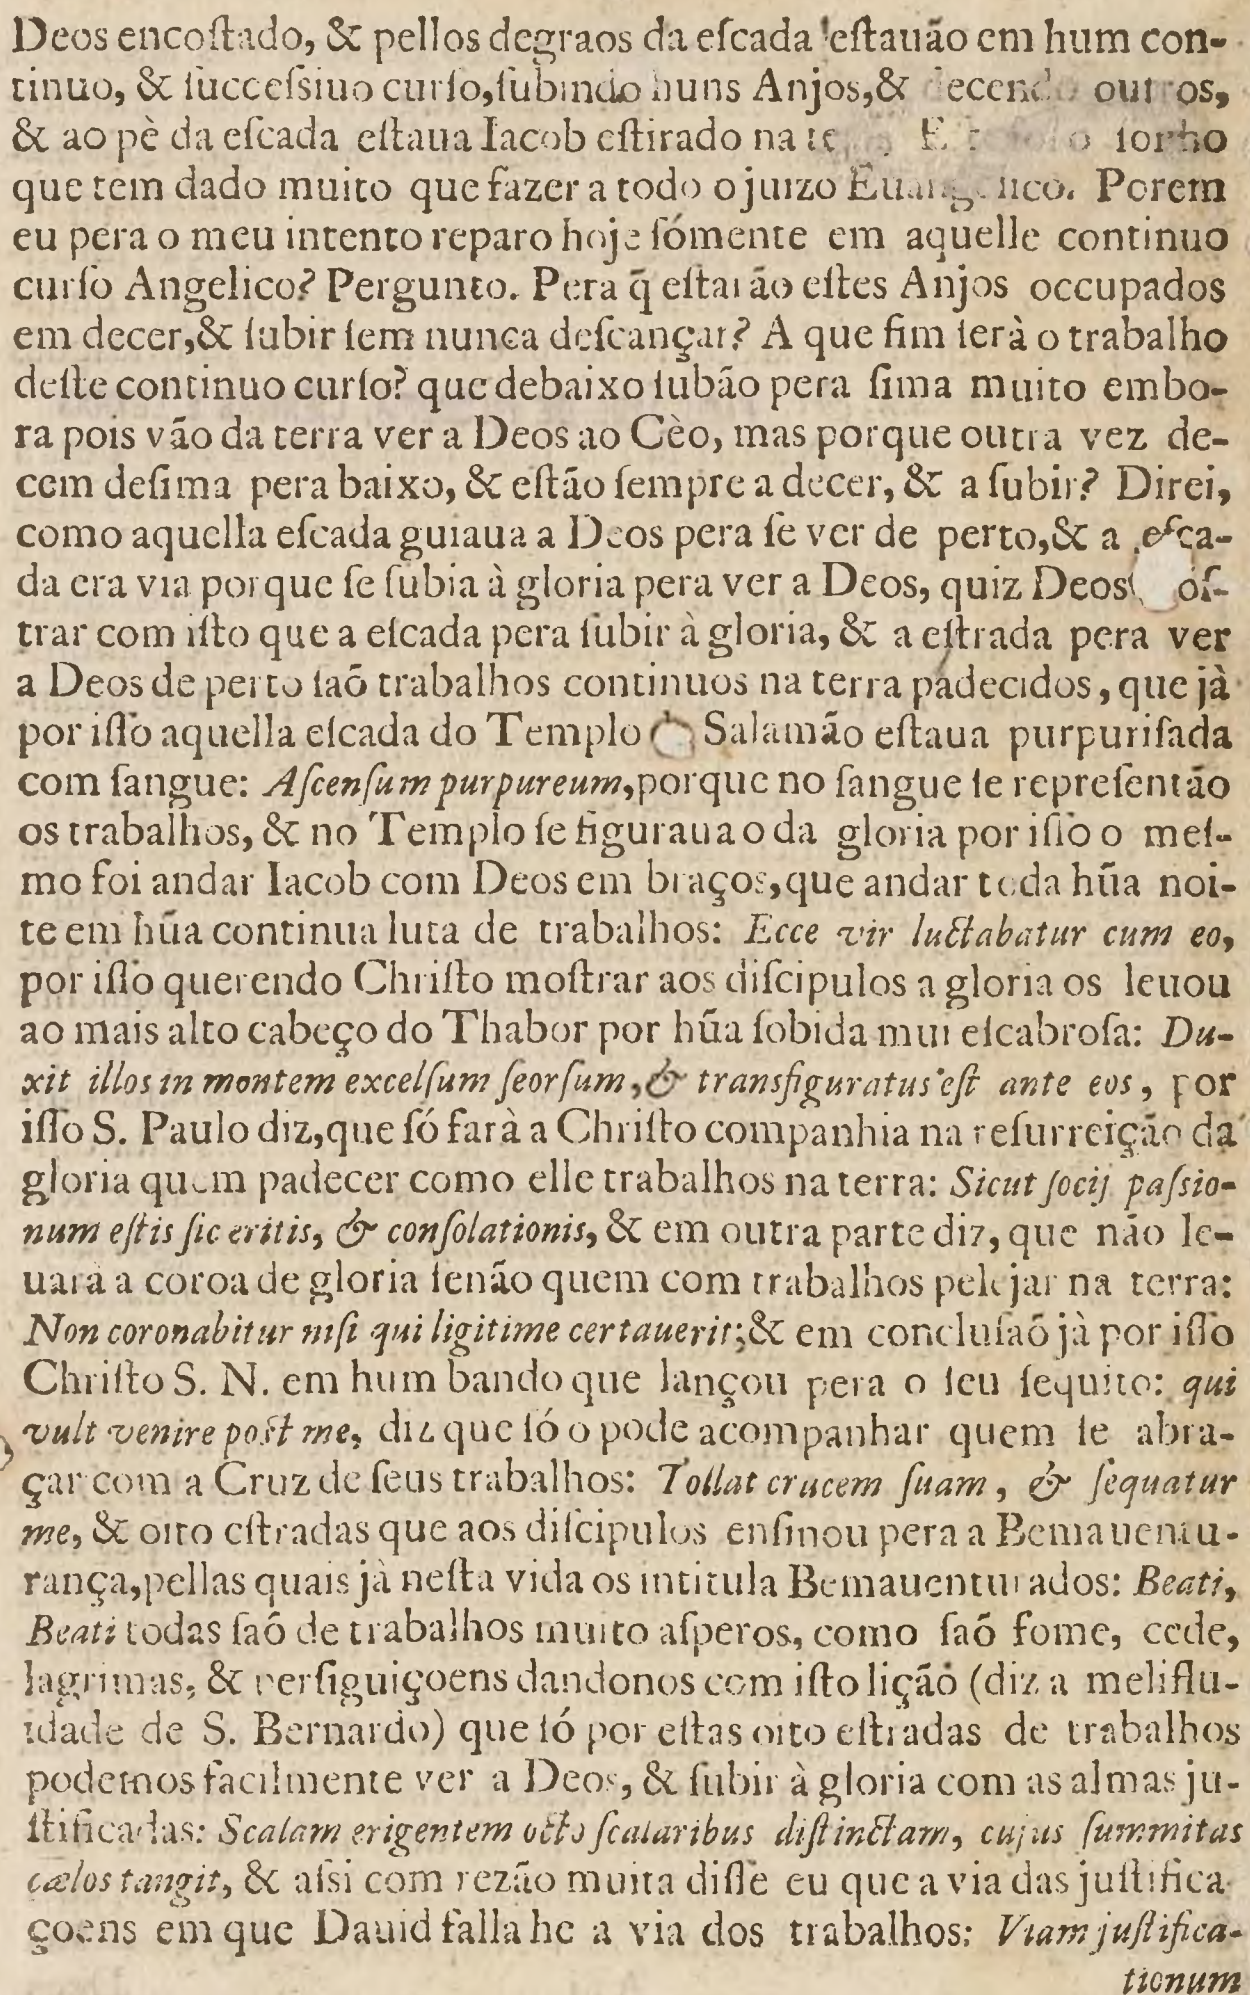 Deos encoſtado, & pellos degraos da eſcada eſtauão em hum con-
tinuo, & ſucceſsiuo curſo, ſubindo huns Anjos, & outros,
& ao pè da eſcada eſtaua Iacob eſtirado na ſonho
que tem dado muito que fazer a todo o juizo Porem
eu pera o meu intento reparo hoje ſómente em aquelle continuo
curſo Angelico? Pergunto. Pera q̃ eſtauão eſtes Anjos occupados
em decer, & ſubir ſem nunca deſcançar? A que fim ſerà o trabalho
deſte continuo curſo? que debaixo ſubão pera ſima muito embo-
ra pois vão da terra ver a Deos ao Cèo, mas porque outra vez de-
cem deſima pera baixo, & eſtão ſempre a decer, & a ſubir? Direi,
como aquella eſcada guiaua a Deos pera ſe ver de perto, & a eſca-
da era via porque ſe ſubia à gloria pera ver a Deos, quiz Deos oſ-
trar com iſto que a eſcada pera ſubir à gloria, & a eſtrada pera ver
a Deos de perto ſaõ trabalhos continuos na terra padecidos, que jà
por iſſo aquella eſcada do Templo Salamão eſtaua purpuriſada
com ſangue: Aſcenſum purpureum, porque no ſangue ſe repreſentão
os trabalhos, & no Templo ſe figuraua o da gloria por iſſo o meſ-
mo foi andar Iacob com Deos em braços, que andar toda hũa noi-
te em hũa continua luta de trabalhos: Ecce vir luctabatur cum eo,
por iſſo querendo Chriſto moſtrar aos diſcipulos a gloria os leuou
ao mais alto cabeço do Thabor por hũa ſobida mui eſcabroſa: Du-
xit illos in montem excelſum ſeorſum, & transfiguratus eſt ante eos, por
iſſo S. Paulo diz, que ſó farà a Chriſto companhia na reſurreição da
gloria quem padecer como elle trabalhos na terra: Sicut ſocij paſsio-
num eſtis ſic eritis, & conſolationis, & em outra parte diz, que não le-
uarà a coroa de gloria ſenão quem com trabalhos pelejar na terra:
Non coronabitur niſi qui ligitime certauerit; & em concluſaõ jà por iſſo
Chriſto S. N. em hum bando que lançou pera o ſeu ſequito: qui
vult venire poſt me, diz que ſó o pode acompanhar quem ſe abra-
çar com a Cruz de ſeus trabalhos: Tollat crucem ſuam, & ſequatur
me, & oito eſtradas que aos diſcipulos enſinou pera a Bemauentu-
rança, pellas quais jà neſta vida os intitula Bemauenturados: Beati,
Beati todas ſaõ de trabalhos muito aſperos, como ſaõ fome, cede,
lagrimas, & perſiguiçoens dandonos com iſto lição (diz a meliflu-
idade de S. Bernardo) que ſó por eſtas oito eſtradas de trabalhos
podemos facilmente ver a Deos, & ſubir à gloria com as almas ju-
ſtificadas: Scalam erigentem octo ſcalaribus diſtinctam, cujus ſummitas
cælos tangit, & aſsi com rezão muita diſſe eu que a via das juſtifica-
çoens em que Dauid falla he a via dos trabalhos: Viam juſtifica-
tionum